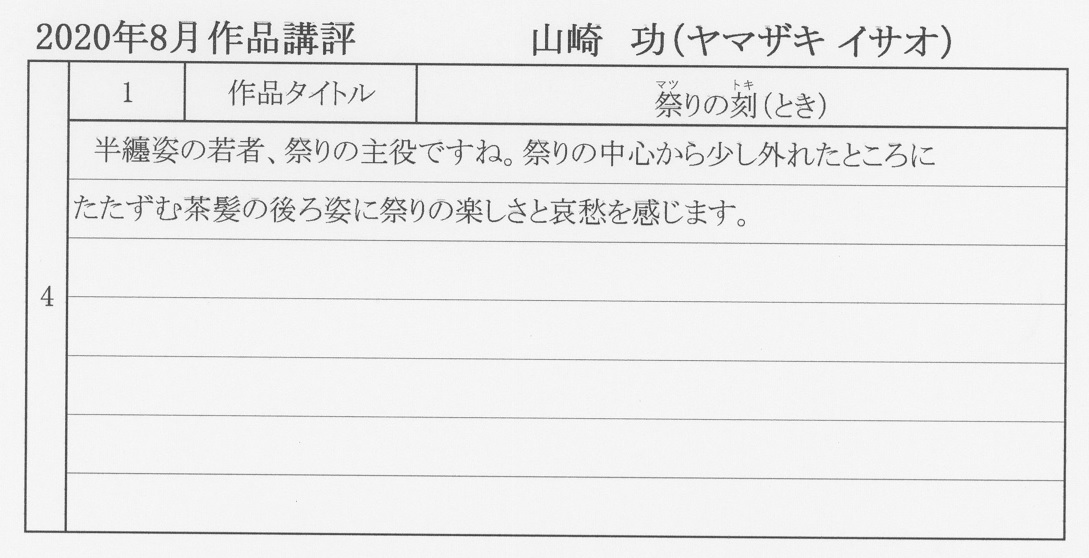 2020年8月 作品講評 山崎 功(ヤマザキ イサオ)
1 作品タイトル 祭りの刻(とき)
マツ トキ
半纏姿の若者、祭りの主役ですね。祭りの中心から少し外れたところに
たたずむ茶髪の後ろ姿に祭りの楽しさと哀愁を感じます。
4